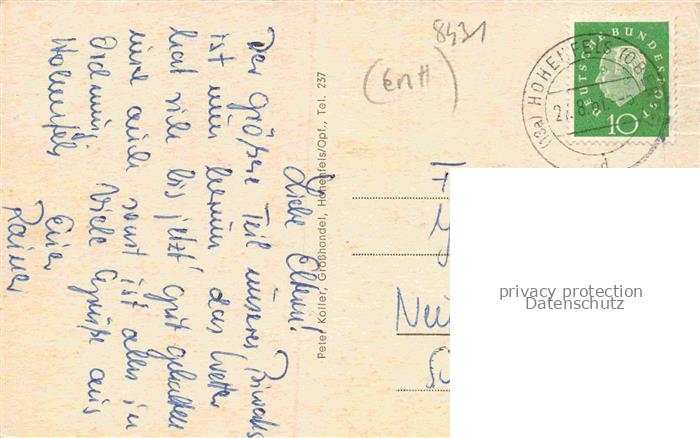 Liebe Eltern!
Der größere Teil unseres Biwaks
ist nun herum das Wetter
hat sich bis jetzt gut gehalten
und auch sonst ist alles in
Ordnung. Viele Grüße aus
Hohenfels
Euer
Rainer
Peter Koller, Großhandel, Hohenfels/Opf., Tel. 237
8431
(Entf)
DEUTSCHE BUNDESPOST
10
(13a) HOHENFELS (OB
privacy protection
Datenschutz